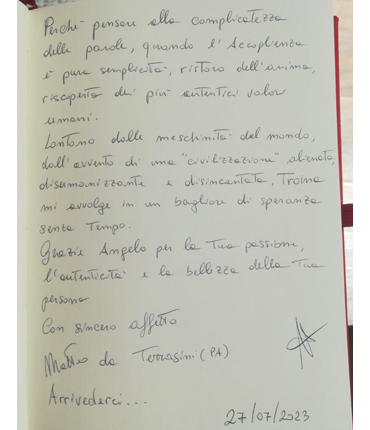 Perché pensare alla complicatezza
delle parole, quando l'Accoglienza
è pura semplicità, ristoro dell'anima,
riscoperta dei più autentici valori
umani.
Lontano dalle meschinità del mondo,
dall'avvento di una "civilizzazione" alienata,
disumanizzante e disincantata, Troina
mi avvolge in un bagliore di speranza
senza tempo.
Grazie Angelo per la tua passione,
l'autenticità e la bellezza della tua
persona
Con sincero affetto
Matteo da Terrasini (PA)
Arrivederci...
27/07/2023